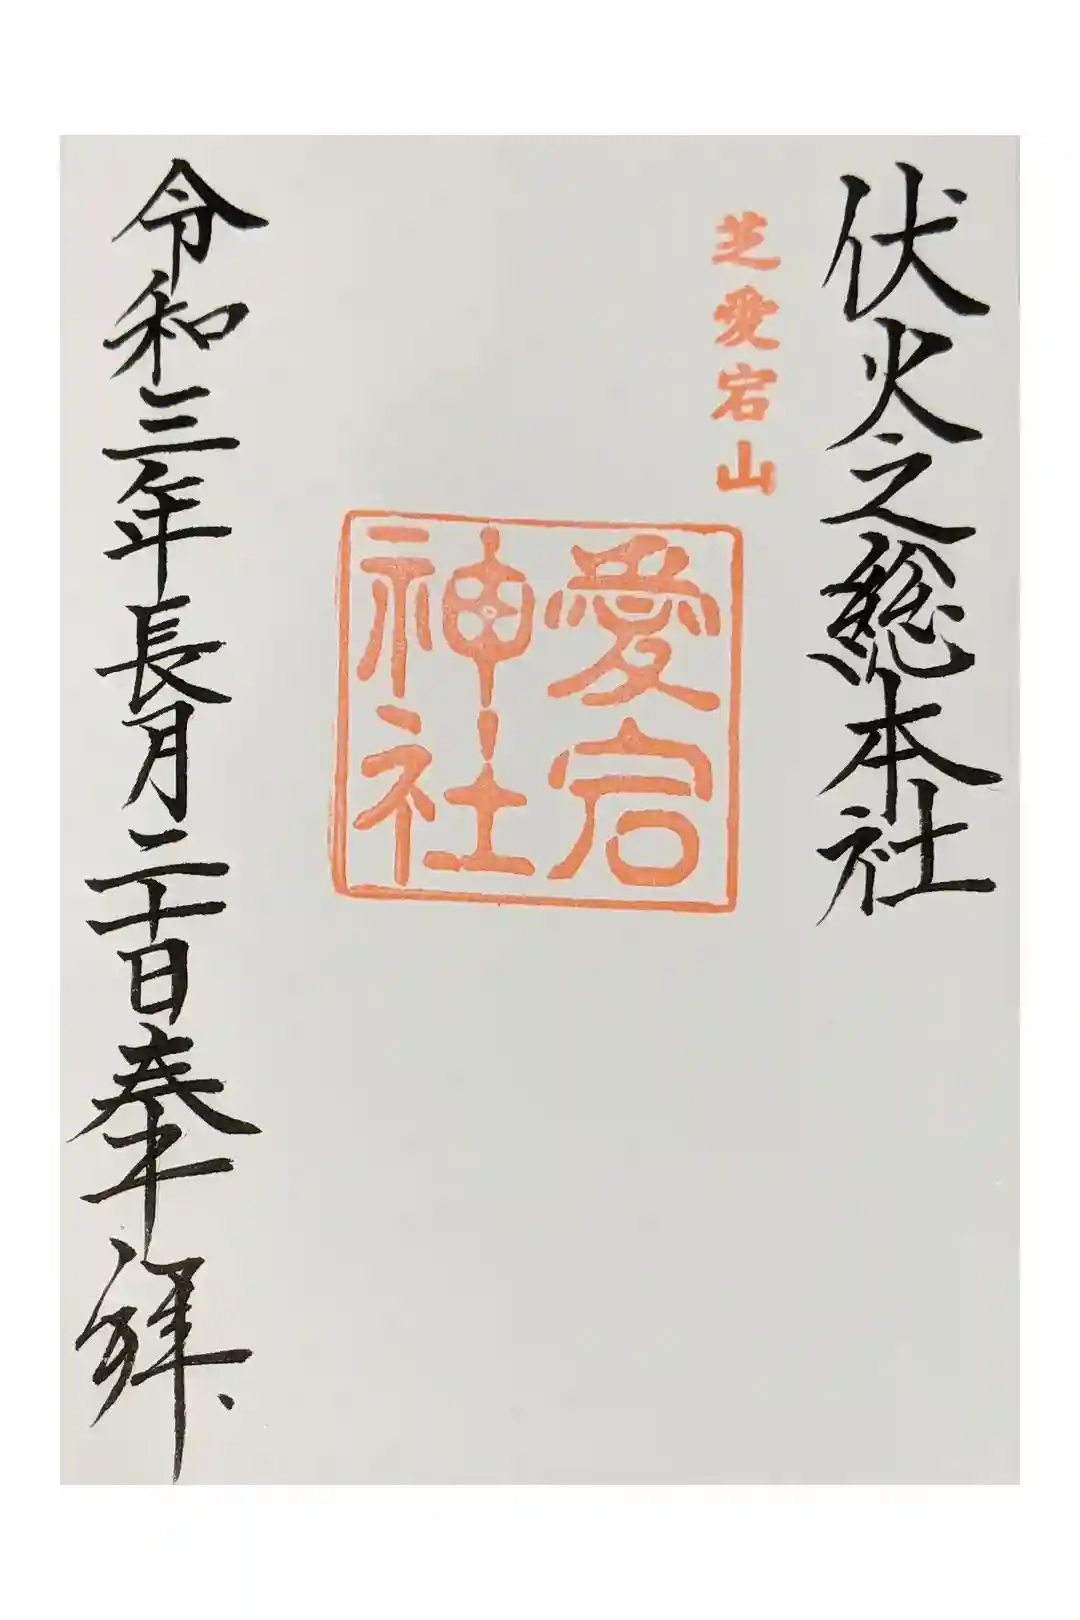 伏火之総本社
芝愛宕山
愛宕
神社
令和三年長月二十日奉拝